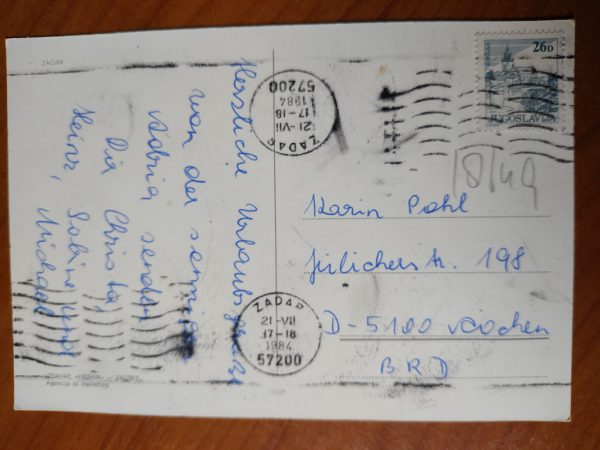 ZADAR
Herzliche Urlaubsgrüße
von der
Adria senden
Dir Christa,
Heinz, Sabine und
Michael
VJESNIK — ZAGREB
Agencija za marketing
ZADAR
21-VII
17-18
1984
57200
26D
JUGOSLAVIJA
18/49
Karin Pohl
Jülicherstr. 198
D-5100 Aachen
BRD
ZADAR
21-VII
17-18
1984
57200